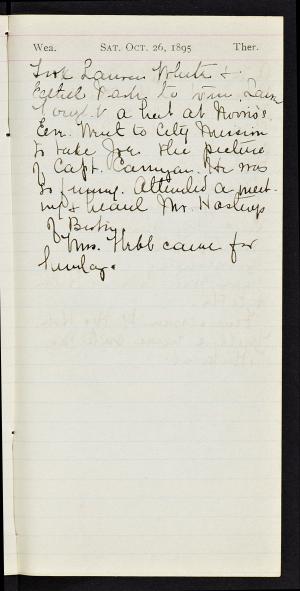 Wea. SAT. OCT. 26, 1895 Ther.
Took Lauren White &
Ethel Nash to
bought a hat at Norris's
Eve. Went to City Mission
to take Joe. the picture
of Capt. He was
so funny. Attended a meet-
ing & heard Mr. Hastings
of
Mrs. Webb came for
Sunday.